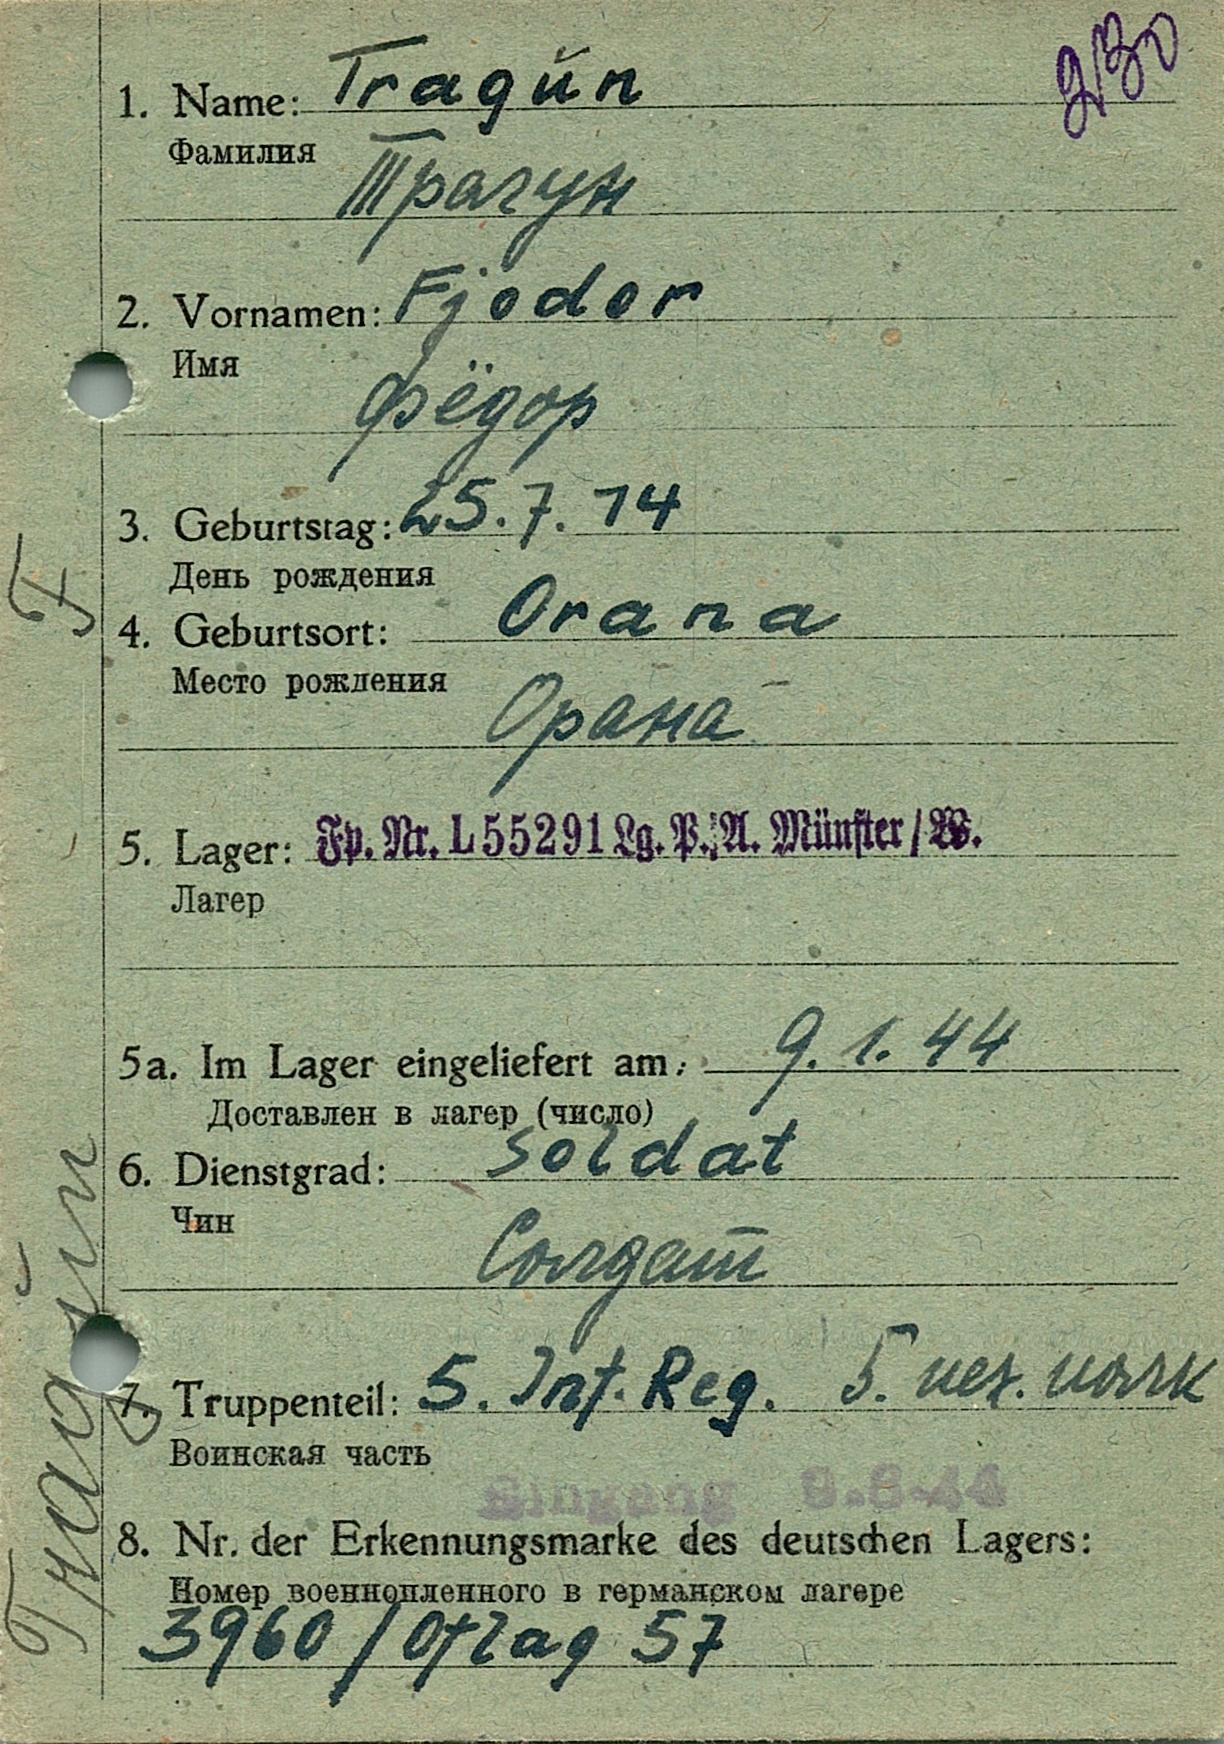 930
1. Name: Tragún
Фамилия
Трагун
2. Vornamen: Fjodor
Имя
Фёдор
3. Geburtstag: 25.7.14
День рождения
4. Geburtsort: Orana
Место рождения
Орана
5. Lager: Fp. Nr. L 55291 Lg. P. A. Münster / W.
Лагер
5a. Im Lager eingeliefert am: 9.1.44
Доставлен в лагер (число)
6. Dienstgrad: Soldat
Чин
Солдат
7. Truppenteil: 5. Inf. Reg. 5. пех. полк
Воинская часть
Eingang 9.6.44
8. Nr. der Erkennungsmarke des deutschen Lagers:
Номер военнопленного в германском лагере
3960 / Oflag 57
Tragún F